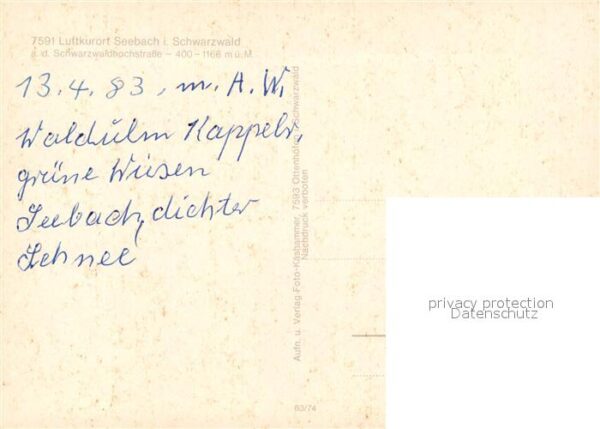 7591 Luftkurort Seebach i. Schwarzwald
a. d. Schwarzwaldhochstraße – 400–1166 m ü. M.
13.4.83, m. A. W.
Waldulm Kappelr,
grüne Wiesen
Seebach, dichter
Schnee
Aufn. u. Verlag Foto-Käshammer, 7593 Ottenhöfen/Schwarzwald
Nachdruck verboten
83/74
privacy protection
Datenschutz